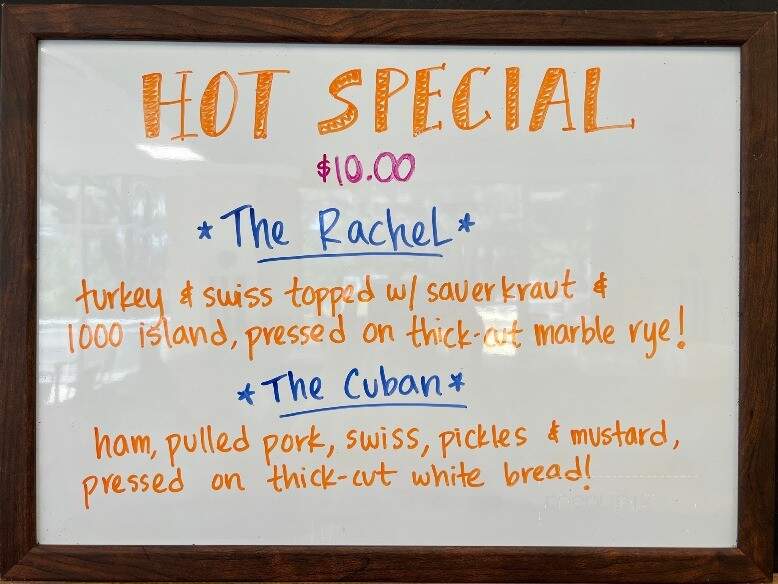 HOT SPECIAL
$10.00
* The Rachel *
turkey & swiss topped w/ sauerkraut &
1000 island, pressed on thick-cut marble rye!
* The Cuban *
ham, pulled pork, swiss, pickles & mustard,
pressed on thick-cut white bread!